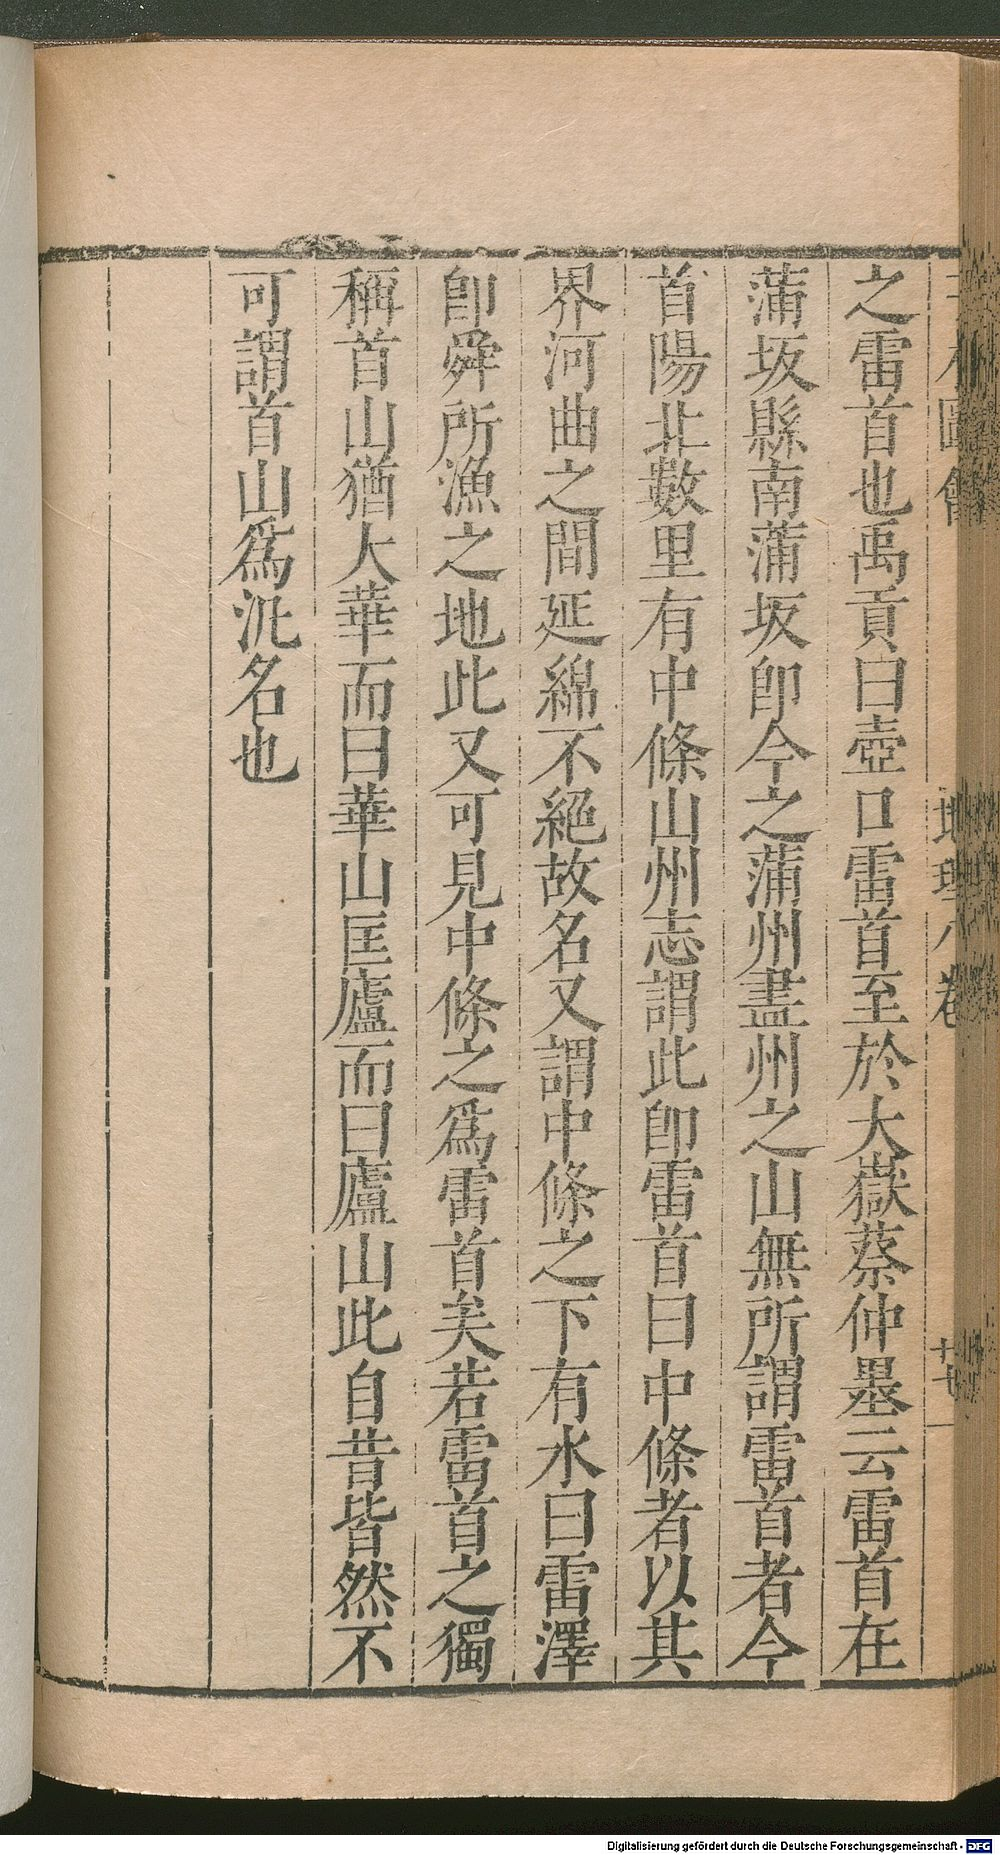 之雷首也禹貢曰壺口雷首至於大嶽蔡仲墨云雷首在
蒲坂縣南蒲坂卽今之蒲州盡州之山無所謂雷首者今
首陽北數里有中條山州志謂此卽雷首曰中條者以其
界河曲之間延綿不絕故名又謂中條之下有水曰雷澤
卽舜所漁之地此又可見中條之爲雷首矣若雷首之獨
稱首山猶大華而曰華山匡廬而曰廬山此自昔皆然不
可謂首山爲汎名也
地理八卷
廿七
Digitalisierung gefördert durch die Deutsche Forschungsgemeinschaft - DFG